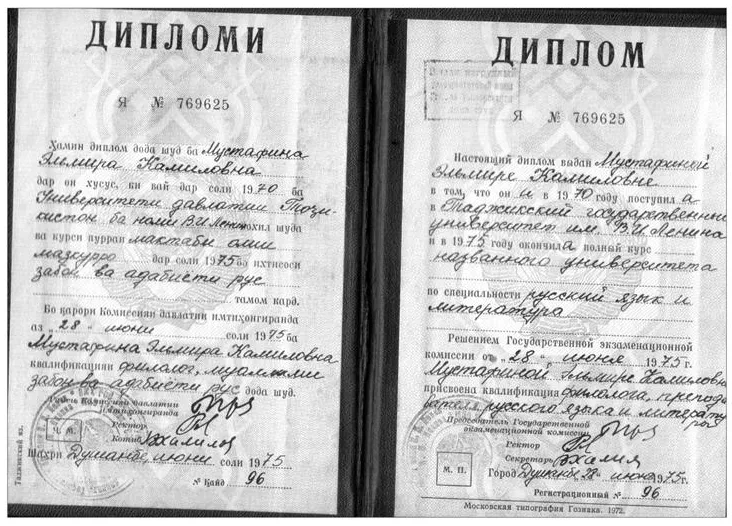 ДИПЛОМИ
Я № 769625
Ҳамин диплом дода шуд ба Мустафина
Эльмира Камиловна
дар он хусус, ки вай дар соли 1970 ба
Университети давлатии Тоҷи-
кистон ба номи В.И Ленин дохил шуда
ва курси пурраи мактаби олии
мазкурро дар соли 1975 ба ихтисоси
забон ва адабиёти рус
тамом кард.
Бо қарори Комиссияи давлатии имтиҳонгиранда
аз „28“ июни соли 1975 ба
Мустафина Эльмира Камиловна
квалификацияи филолог, муаллими
забон ва адабиёти рус дода шуд.
Раиси Комиссияи давлатии
имтиҳонгиранда
Ректор
Котиб
М. М.
Шаҳри Душанбе, июни соли 1975
№ Қайд 96
Таджикский яз.
ДИПЛОМ
Я № 769625
Настоящий диплом выдан Мустафиной
Эльмире Камиловне
в том, что он а в 1970 году поступил а
в Таджикский государственный
университет им. В.И Ленина
и в 1975 году окончил а полный курс
названного университета
по специальности русский язык и
литература
Решением Государственной экзаменационной
комиссии от „28“ июня 1975 г.
Мустафиной Эльмире Камиловне
присвоена квалификация филолога, препода
вателя русского языка и литерату
ры
Председатель Государственной
экзаменационной комиссии
Ректор
Секретарь
М. П.
Город Душанбе 28 июня 1975 г.
Регистрационный № 96
Московская типография Гознака. 1972.